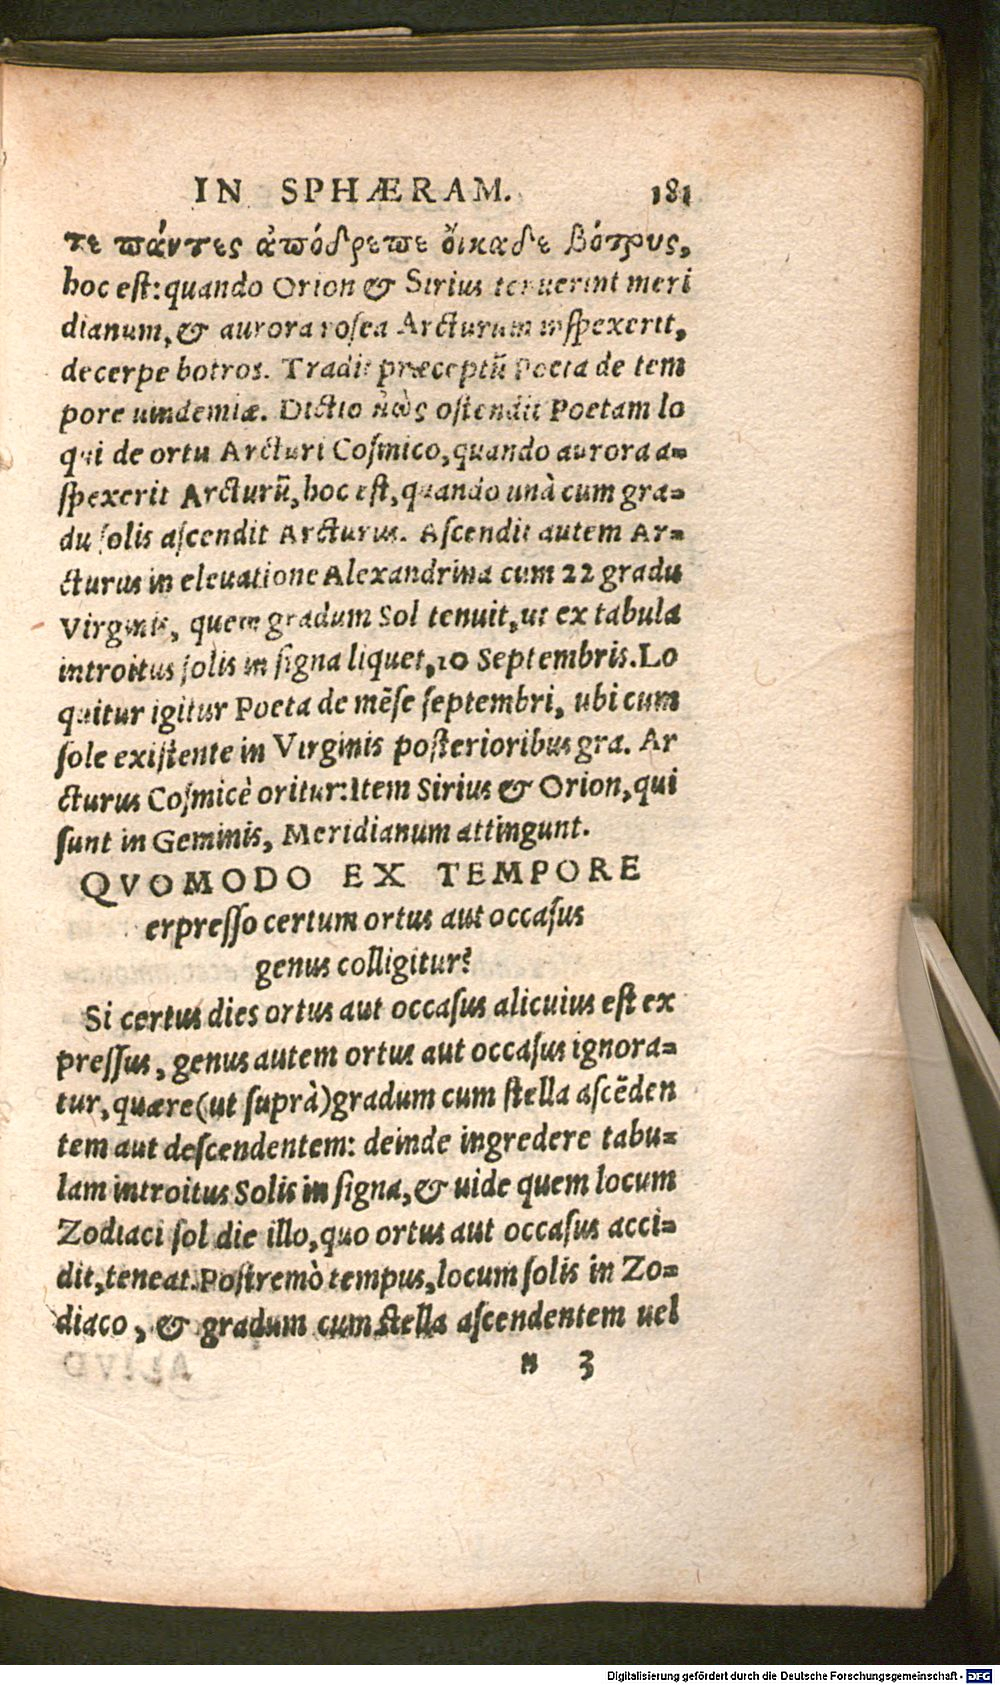 IN SPHÆRAM. 181
τε πάντες ἀπόδρεπε ὄικαδε βότρυς,
hoc est: quando Orion & Sirius tenuerint meri
dianum, & aurora rosea Arcturum inspexerit,
decerpe botros. Tradit præceptũ Poeta de tem
pore uindemiæ. Dictio ἠὼς ostendit Poetam lo
qui de ortu Arcturi Cosmico, quando aurora a=
spexerit Arcturũ, hoc est, quando unà cum gra=
du solis ascendit Arcturus. Ascendit autem Ar=
cturus in eleuatione Alexandrina cum 22 gradu
Virginis, quem gradum Sol tenuit, ut ex tabula
introitus solis in signa liquet, 10 Septembris. Lo
quitur igitur Poeta de mẽse septembri, ubi cum
sole existente in Virginis posterioribus gra. Ar
cturus Cosmicè oritur: Item Sirius & Orion, qui
sunt in Geminis, Meridianum attingunt.
QVOMODO EX TEMPORE
erpresso certum ortus aut occasus
genus colligitur?
Si certus dies ortus aut occasus alicuius est ex
pressus, genus autem ortus aut occasus ignora=
tur, quære (ut suprà) gradum cum stella ascẽden
tem aut descendentem: deinde ingredere tabu=
lam introitus Solis in signa, & uide quem locum
Zodiaci sol die illo, quo ortus aut occasus acci=
dit, teneat. Postremò tempus, locum solis in Zo=
diaco, & gradum cum stella ascendentem uel
n 3
Digitalisierung gefördert durch die Deutsche Forschungsgemeinschaft - DFG